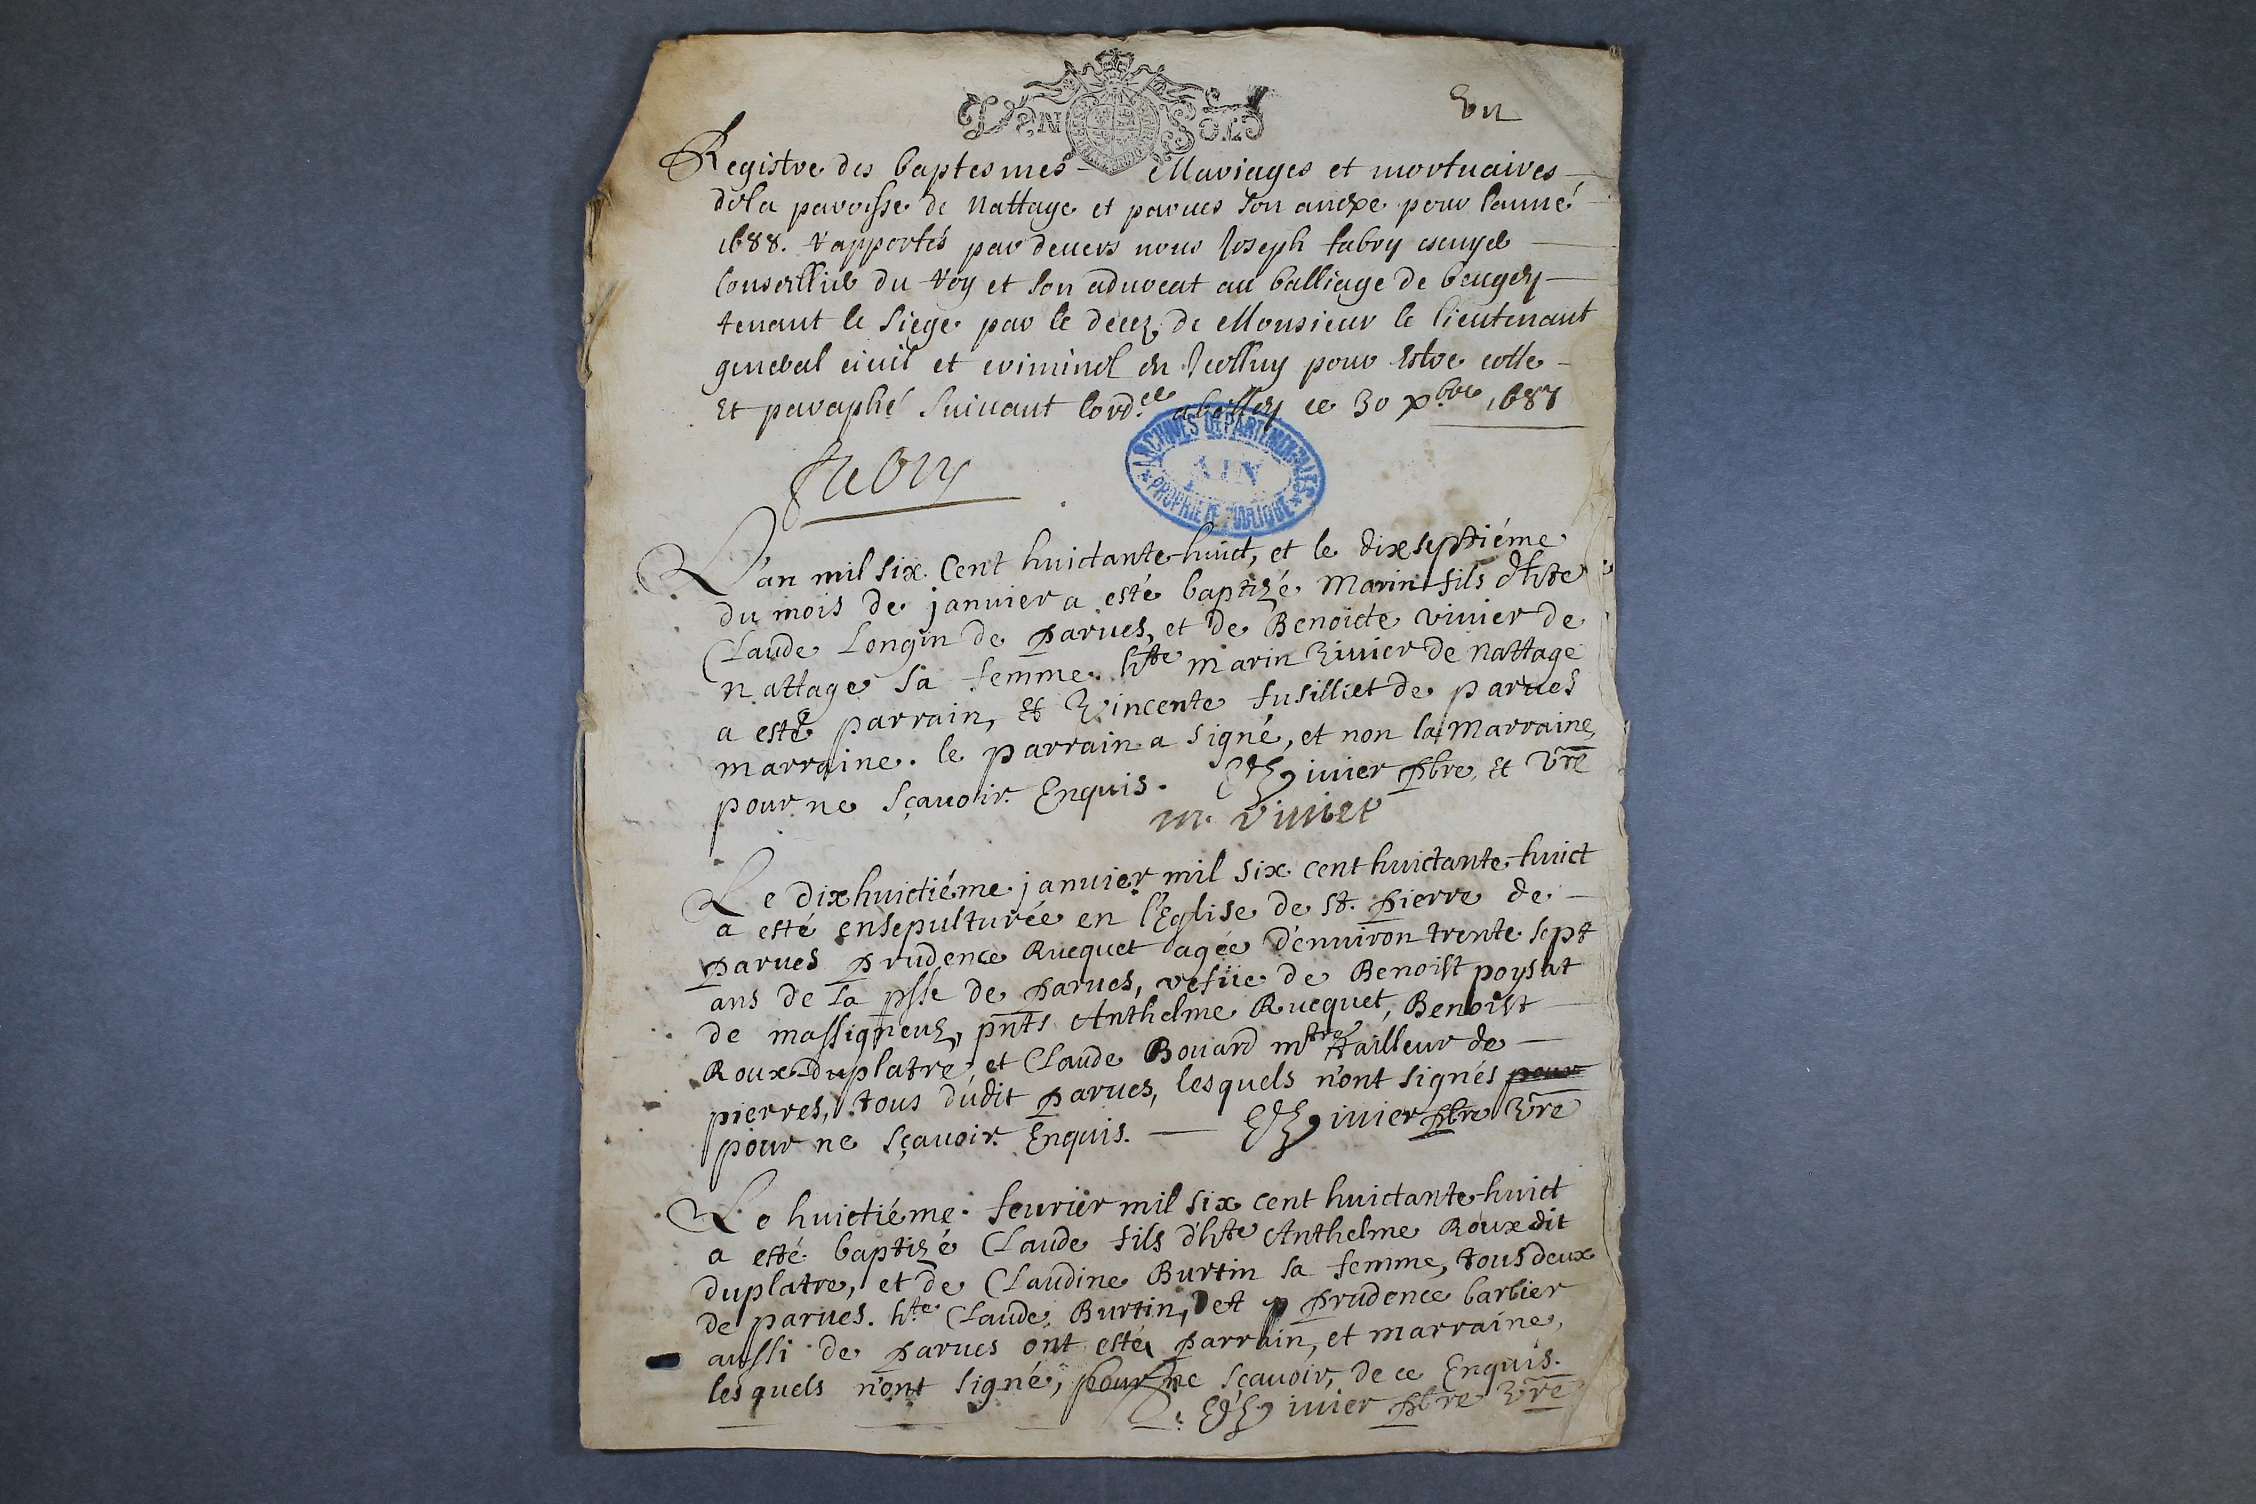 Un
Un Sols
Registre des baptesmes Mariages et mortuaires
dela paroisse de Nattage et parues son anexe pour lanné
1688. rapportés par deuers nous Joseph fabry escuyer
Conseillier du Roy et son aduocat au balliage de beugey
tenant le siege par le decez de Monsieur le lieutenant
general ciuil et criminel en Jcelluy pour Estre cotte
Et paraphé suiuant lord.ce a belley ce 30 xbre 1687
fabry
ARCHIVES DEPARTEMENTALES
AIN
PROPRIETE PUBLIQUE
L'an mil six Cent huictante-huict, et le dixseptiéme
du mois de januier a esté baptizé Marin fils d'hte
Claude Longin de parues, et de Benoicte viuier de
nattage sa femme. hte marin Viuier de nattage
a esté parrain, et Vincente fusilliet de parues
marraine. le parrain a signé, et non la Marraine,
pour ne sçauoir. Enquis. Viuier pbre, et vre
m. viuier
Le dixhuictiéme januier mil six cent huictante-huict
a esté ensepulturée en l'Eglise de st. pierre de
parues prudence Rucquet agée d'enuiron trente sept
ans de la psse de parues, vefüe de Benoist poysat
de massigneuz, pnts Anthelme Rucquet, Benoist
Roux-duplatre, et Claude Bouard mtre tailleur de
pierres, tous dudit parues, lesquels n'ont signés pour
pour ne sçauoir. Enquis. Viuier pbre Vre
Le huictiéme feurier mil six cent huictante-huict
a esté baptizé Claude fils d'hte Anthelme Roux dit
duplatre, et de Claudine Burtin sa femme, tous deux
de parues. hte Claude Burtin, et p prudence barbier
aussi de parues ont esté parrain, et marraine,
lesquels n'ont signé, pour ne sçauoir, de ce Enquis.
Viuier pbre Vre